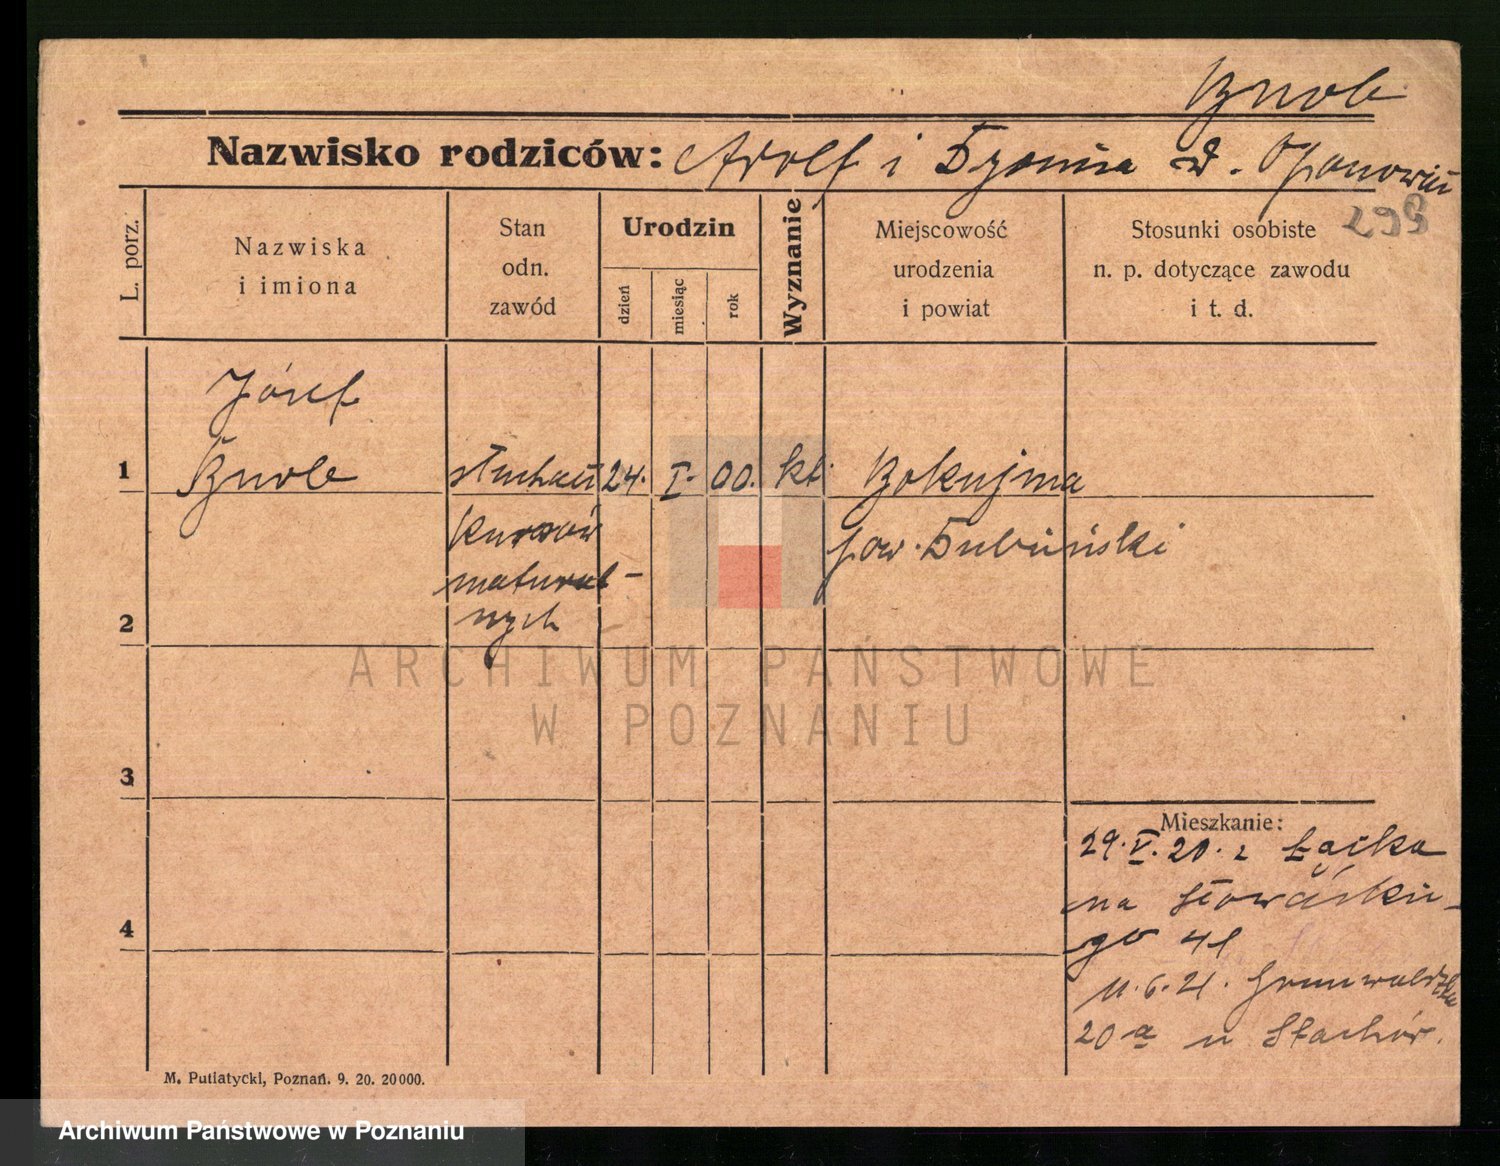 Nazwisko rodziców: Adolf i
L. porz.
Nazwiska
i imiona
Stan
odn.
zawód
Urodzin
dzień
miesiąc
rok
Wyznanie
Miejscowość
urodzenia
i powiat
Stosunki osobiste
n. p. dotyczące zawodu
i t. d.
298
Józef
1
słuchacz 24. I. 00. kt.
kursów
matural-
nych
pow. Dubiński
2
3
4
Mieszkanie:
29.V.20. z Łącka
na Słowackie-
go 41
11.6.21. Grunwaldzka
20a u Stachów.
M. Putiatycki, Poznań. 9. 20. 20000.
ARCHIWUM PAŃSTWOWE
W POZNANIU
Archiwum Państwowe w Poznaniu